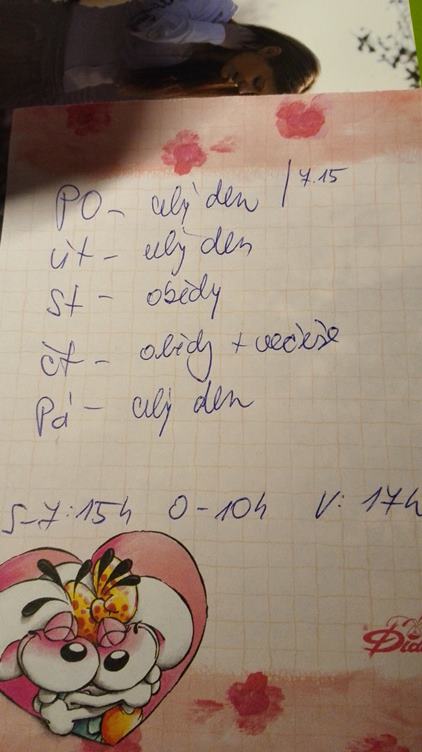 PO - celý den / 7.15
út - celý den
st - obědy
čt - obědy + večeře
Pá - celý den
S - 7:15h O - 10h V: 17h
Didd